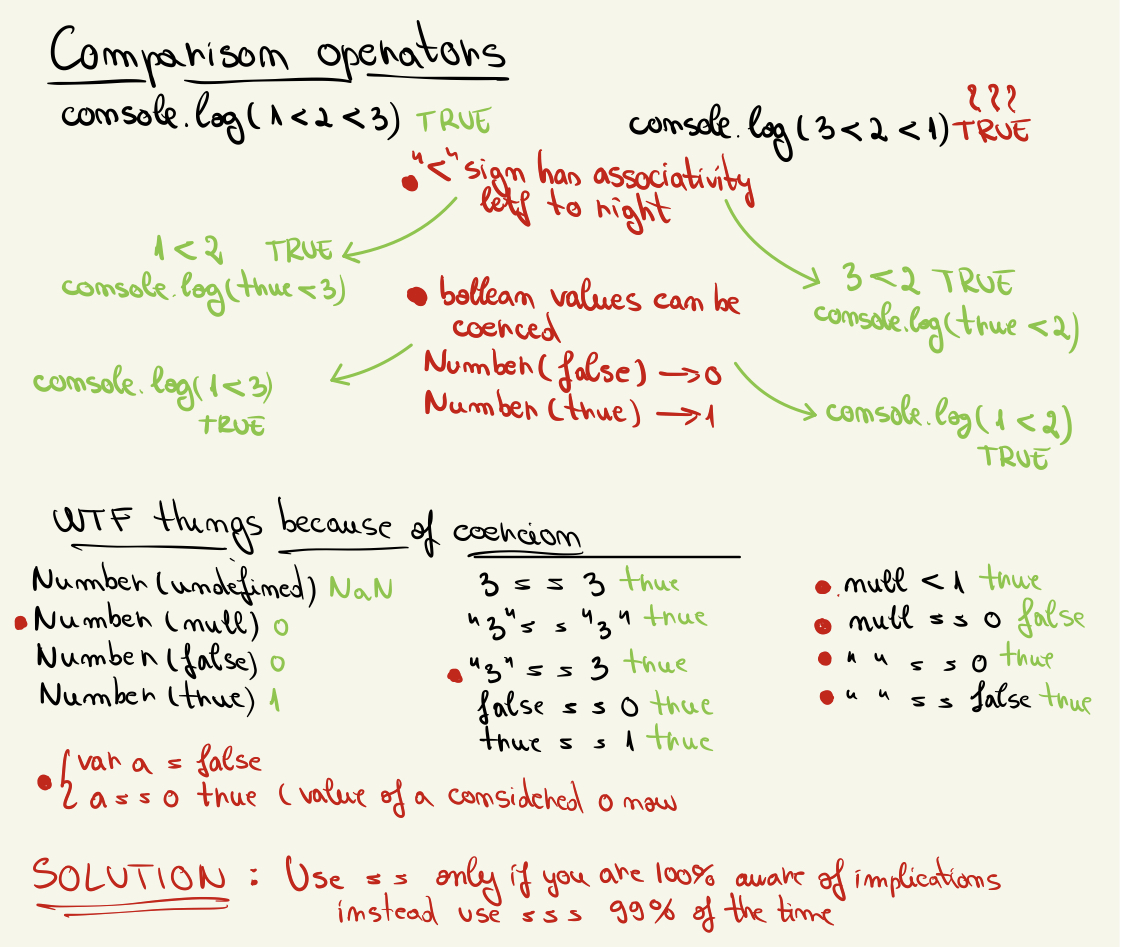 Comparison operators
console.log(1<2<3) TRUE
???
console.log(3<2<1) TRUE
• "<" sign has associativity
letf to right
1<2 TRUE
console.log(true<3)
3<2 TRUE
console.log(true<2)
• bollean values can be
coerced
Number(false) → 0
Number(true) → 1
console.log(1<3)
TRUE
console.log(1<2)
TRUE
WTF things because of coercion
Number(undefined) NaN
• Number(null) 0
Number(false) 0
Number(true) 1
3 == 3 true
"3" == "3" true
• "3" == 3 true
false == 0 true
true == 1 true
• null < 1 true
• null == 0 false
• " " == 0 true
• " " == false true
• { var a = false
a == 0 true (value of a considered 0 now
SOLUTION : Use == only if you are 100% aware of implications
instead use === 99% of the time